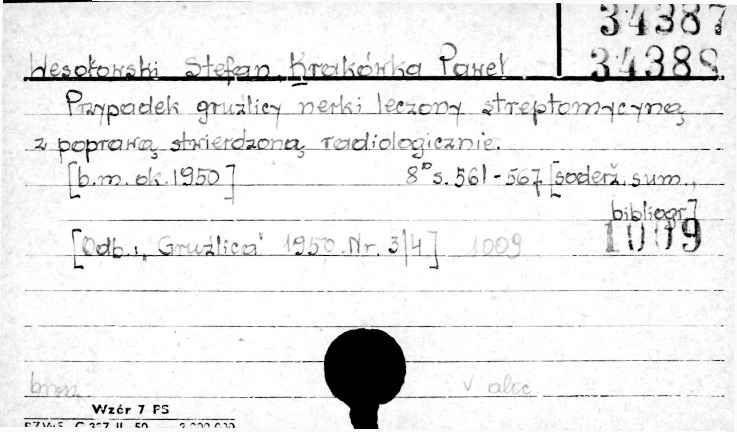 34387
34388
Wesołowski Stefan, Krakówka Paweł
Przypadek gruźlicy nerki leczony streptomycyną
z poprawą stwierdzoną radiologicznie.
[b.m. ok. 1950] 8° s. 561-567 [soderž. sum.,
bibliogr.]
[Odb.: „Gruźlica" 1950. Nr. 3/4] 1009 1009
brosz.
Wzór 7 PS